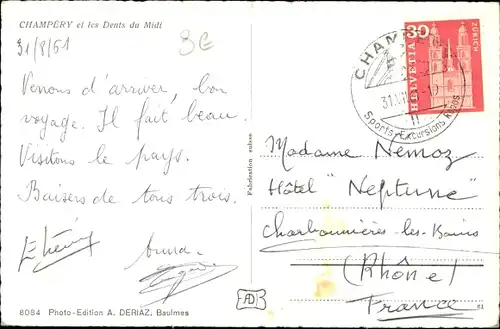 CHAMPÉRY et les Dents du Midi
31/8/61
3€
Venons d'arriver, bon
voyage. Il fait beau.
Visitons le pays.
Baisers de tous trois.
8084 Photo-Edition A. DERIAZ, Baulmes
Fabrication suisse
AD
CHAMP
Sports-Excursions Repos
30
HELVETIA
ZÜRICH
Madame Nemoz
Hôtel "Neptune"
Charbonnières-les-Bains
(Rhône)
France